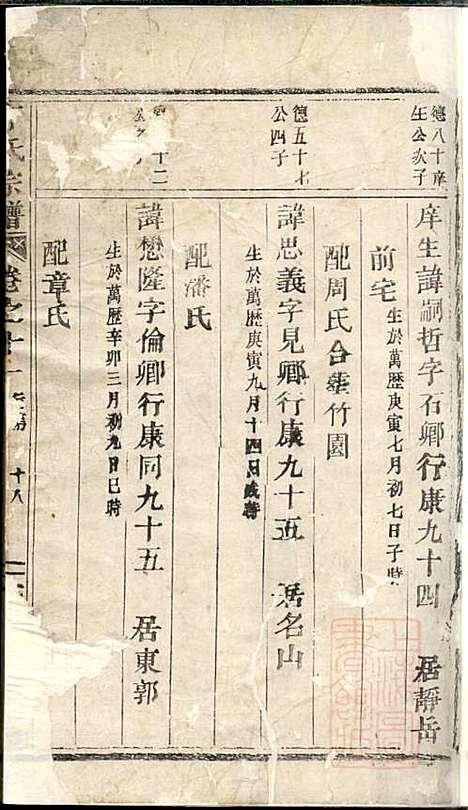 德八十庠
生公次子
庠生諱嗣哲字石卿行康九十四 居靜岳
前宅 生於萬歷庚寅七月初七日子時
配周氏合塟竹園
德五十七
公四子
諱思義字見卿行康九十五 居名山
生於萬歷庚寅九月十四日戌時
配潘氏
十二
諱懋隆字倫卿行康同九十五 居東郭
生於萬歷辛卯三月初九日巳時
配章氏
氏宗譜 卷之十一 十八